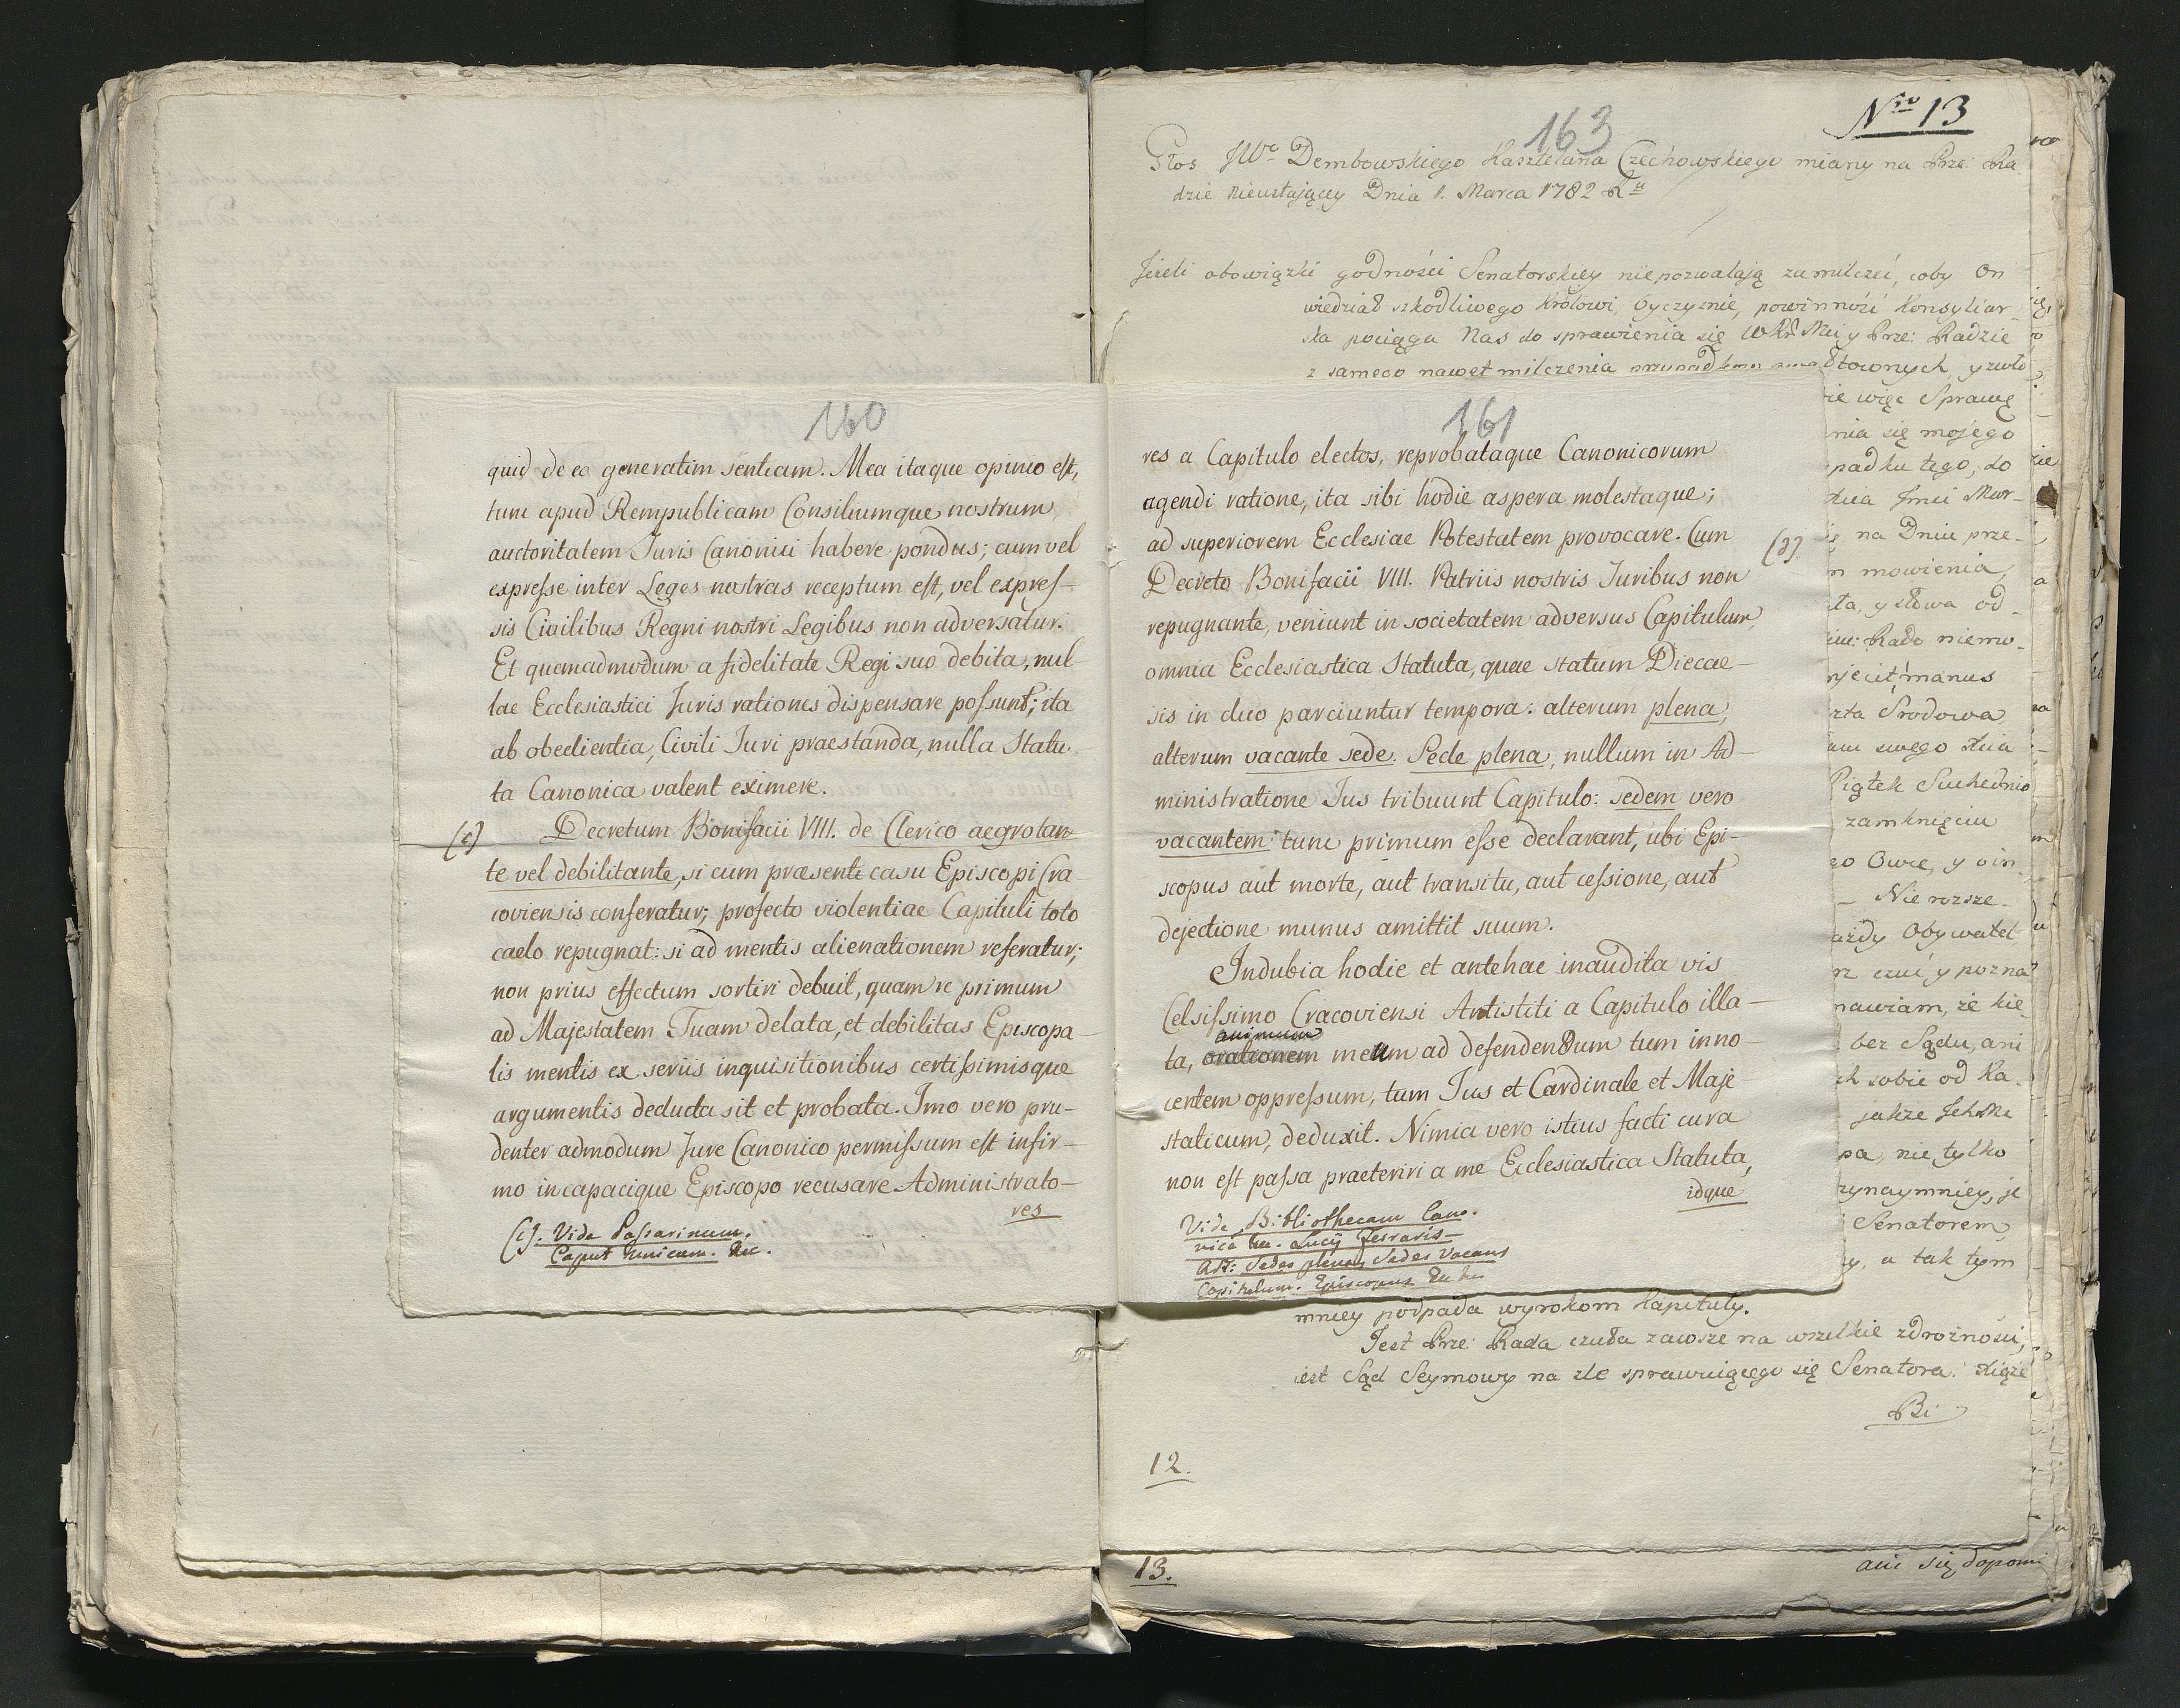 160
quid de eo generatim sentiam. Mea itaque opinio est,
tunc apud Rempublicam Consiliumque nostrum,
auctoritatem Juris Canonici habere pondus; cum vel
expresse inter Leges nostras receptum est, vel expres-
sis Civilibus Regni nostri Legibus non adversatur.
Et quemadmodum a fidelitate Regi suo debita, nul-
lae Ecclesiastici Juris rationes dispensare possunt; ita
ab obedientia, Civili Juri praestanda, nulla Statu-
ta Canonica valent eximere.
(c) Decretum Bonifacii VIII. de Clerico aegrotan-
te vel debilitante, si cum praesenti casu Episcopi Cra-
coviensis conferatur; profecto violentiae Capituli toto
caelo repugnat: si ad mentis alienationem referatur;
non prius effectum sortiri debuit, quam re primum
ad Majestatem Tuam delata, et debilitas Episcopa-
lis mentis ex seriis inquisitionibus certissimisque
argumentis deducta sit et probata. Imo vero pru-
denter admodum Jure Canonico permissum est infir-
mo incapacique Episcopo recusare Administrato-
res
(c). Vide Passarinum.
Caput unicum. &c.
161
res a Capitulo electos, reprobataque Canonicorum
agendi ratione, ita sibi hodie aspera molestaque;
ad superiorem Ecclesiae Potestatem provocare. Cum (d)
Decreto Bonifacii VIII. Patriis nostris Juribus non
repugnante, veniunt in societatem adversus Capitulum,
omnia Ecclesiastica Statuta, quae statum Diecae-
sis in duo parciuntur tempora: alterum plena,
alterum vacante sede. Sede plena, nullum in Ad-
ministratione Jus tribuunt Capitulo: sedem vero
vacantem tunc primum esse declarant, ubi Epi-
scopus aut morte, aut transitu, aut cessione, aut
dejectione munus amittit suum.
Indubia hodie et antehac inaudita vis
Celsissimo Cracoviensi Antistiti a Capitulo illa-
animum
ta, orationem meum ad defendendum tum inno-
centem oppressum, tum Jus et Cardinale et Maje-
staticum, deduxit. Nimia vero istius facti cura
non est passa praeteriri a me Ecclesiastica Statuta,
idque
Vide Bibliothecam Cano-
nica Lucij Ferraris
Art: Sedes plena, Sedes Vacans
Capitulum. Episcopus
163
Nro 13
Głos JWo Dembowskiego Kasztelana Czechowskiego miany na Prze: Ra-
dzie Nieustającey Dnia 1. Marca 1782 Ru
Jeżeli obowiązki godności Senatorskiey niepozwalają zamilczeć, coby On
wiedział szkodliwego Królowi, Oyczyznie, powinność Konsyliar-
ska pociąga Nas do sprawienia się WKr Mci y Prze: Radzie
z samego nawet milczenia
ie więc Sprawę
nia się mojego
padku tego, do
na Dniu prze-
mowienia,
ta, y słowa od-
Rado niemo-
njecit manus
rta Srodowa
swego
Piątek Suchednio
zamknięciu
Owce, y oin
Nie rozsze-
ażdy Obywatel
czuć y pozna
mawiam, że
bez Sądu, ani
ch sobie od Ka-
pa, nie tylko
rzynaymniey, je
Senatorem
y, a tak tym
mniey podpada wyrokom Kapituły.
Jest Prze: Rada czuła zawsze na wszelkie zdrożności,
iest Sąd Seymowy na źle sprawuiącego się Senatora. Xiąże
Bi
12.
13.
ani się dopomi